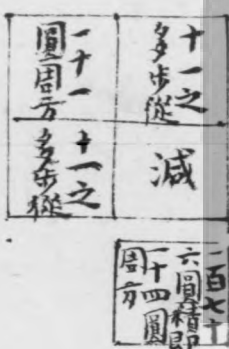 十一之
多步從
一十一
圓周方
減
十一之
多步從
一百七十
六圓積即
一十四圓
周方